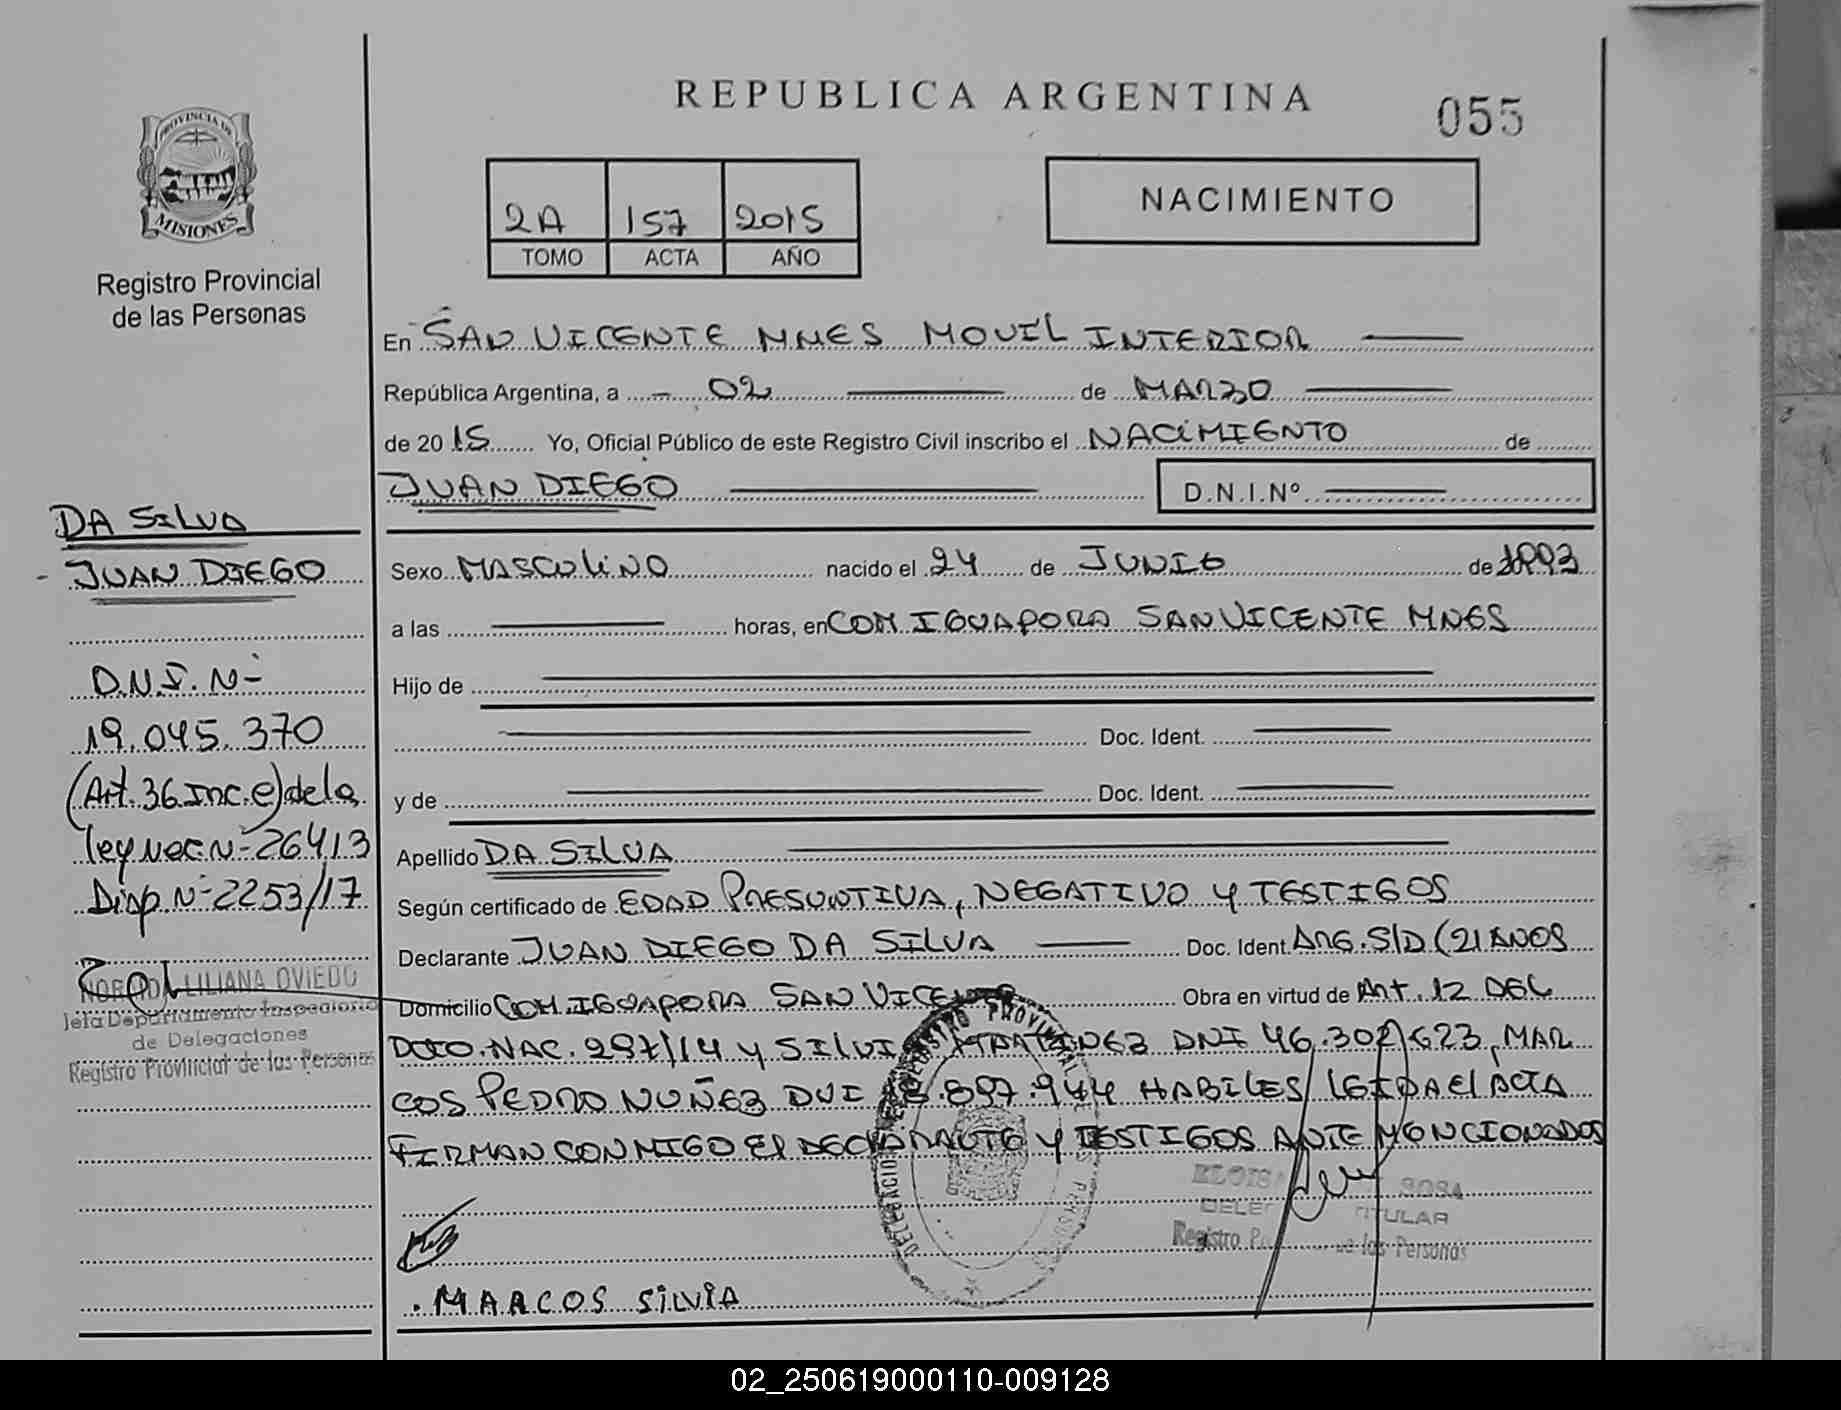 REPUBLICA ARGENTINA
055
PROVINCIA DE
MISIONES
Registro Provincial
de las Personas
2A 157 2015
TOMO ACTA AÑO
NACIMIENTO
En SAN VICENTE MNES MOVIL INTERIOR
República Argentina, a 02 de MARZO
de 2015 Yo, Oficial Público de este Registro Civil inscribo el NACIMIENTO de
JUAN DIEGO D.N.I.Nº
DA SILVA
JUAN DIEGO
D.N.I. N-
19.045.370
(Art. 36 Inc. e) de la
ley Nac. N- 26413
Disp. N- 2253/17
LILIANA OVIEDO
Jefa Departamento Inspectoria
de Delegaciones
Registro Provincial de las Personas
Sexo MASCULINO nacido el 24 de JUNIO de 1993
a las horas, en COM IGUAPORA SAN VICENTE MNES
Hijo de
Doc. Ident.
y de Doc. Ident.
Apellido DA SILVA
Según certificado de EDAD PRESUNTIVA, NEGATIVO Y TESTIGOS
Declarante JUAN DIEGO DA SILVA Doc. Ident. ARG. S/D (21 AÑOS
Domicilio COM. IGUAPORA SAN VICENTE Obra en virtud de Art. 12 DEC
DCTO. NAC. 297/14 y SILVIA MARTINEZ DNI 46.302.623, MAR
COS PEDRO NUÑEZ DNI .897.944 HABILES LEIDA El ACTA
FIRMAN CONMIGO El DECLARANTE Y TESTIGOS ANTE MENCIONADOS
SOSA
TITULAR
Registro las Personas
MARCOS SILVIA
02_250619000110-009128